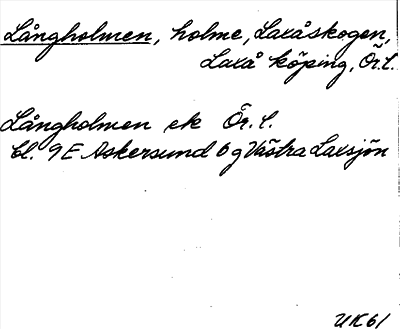 Långholmen, holme, Laxåskogen,
Laxå köping, Ör. l.
Långholmen ek Ör. l.
bl. 9E Askersund 6 g Västra Laxsjön
UK61